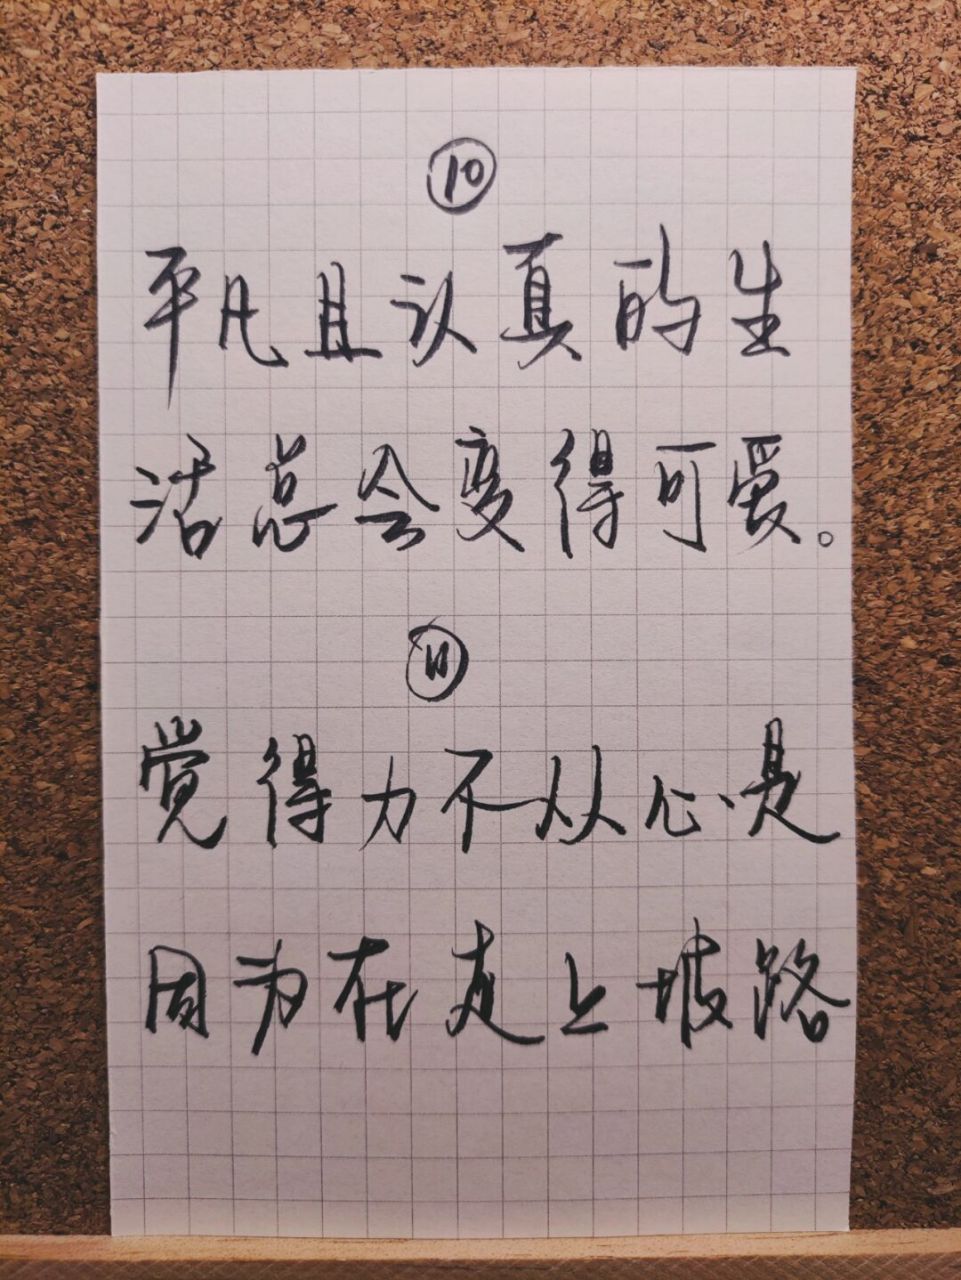 ⑩
平凡且认真的生
活总会变得可爱。
⑪
觉得力不从心是
因为在走上坡路